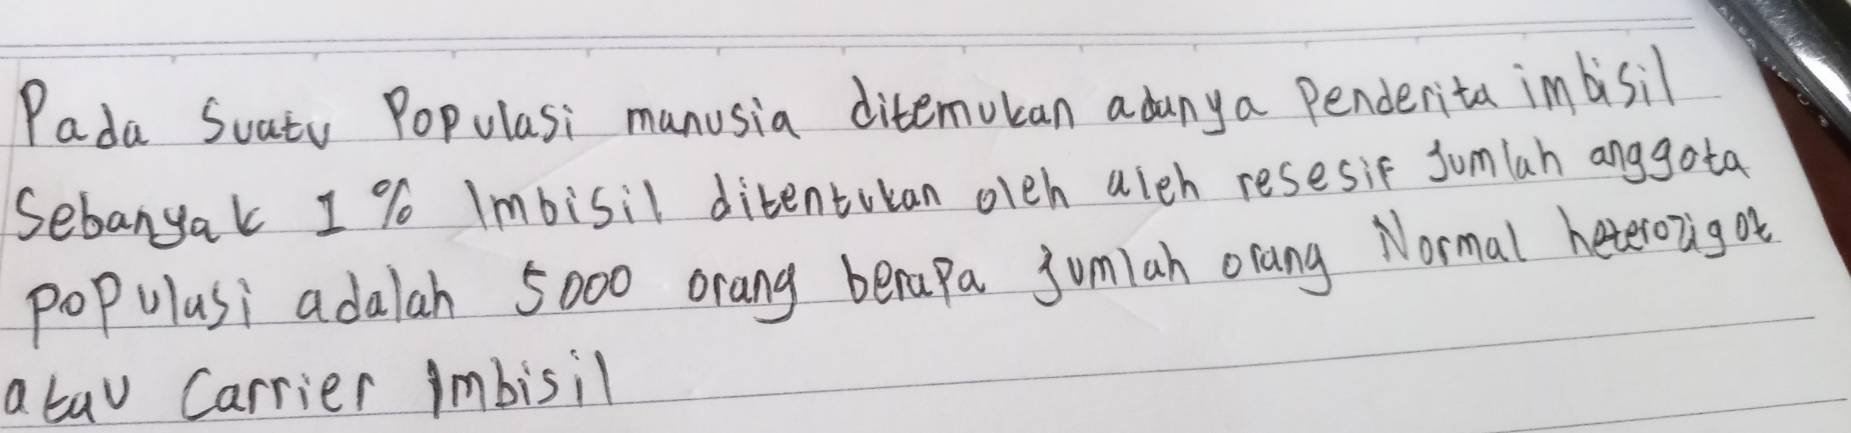 Pada Suatu Populasi manusia ditemukan adanya Penderita imbisil
Sebanyak 1 % Imbisil ditentukan oleh aleh resesif Jumlah anggota
populasi adalah 5000 orang berapa Jumlah orang Normal heterozigot
atau Carrier Imbisil